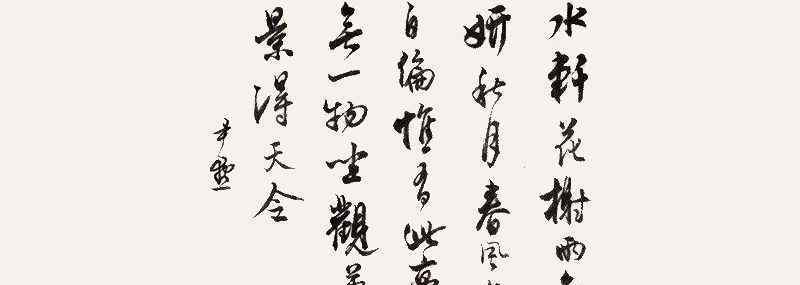 水軒花榭兩
妍秋月春風
自偏惟有此亭
無一物坐觀萬
景得天全
尹